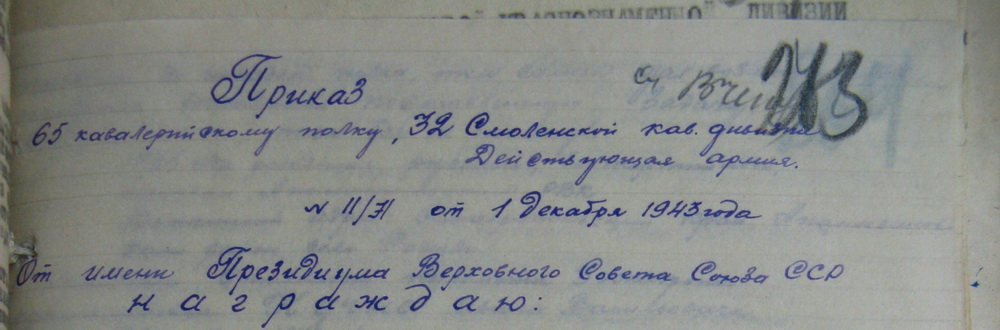 ДИВИЗИИ
Приказ
65 кавалерийскому полку, 32 Смоленской кав. дивизии
Действующая армия.
№ 11/Н от 1 декабря 1943 года
От имени Президиума Верховного Совета Союза ССР
награждаю: